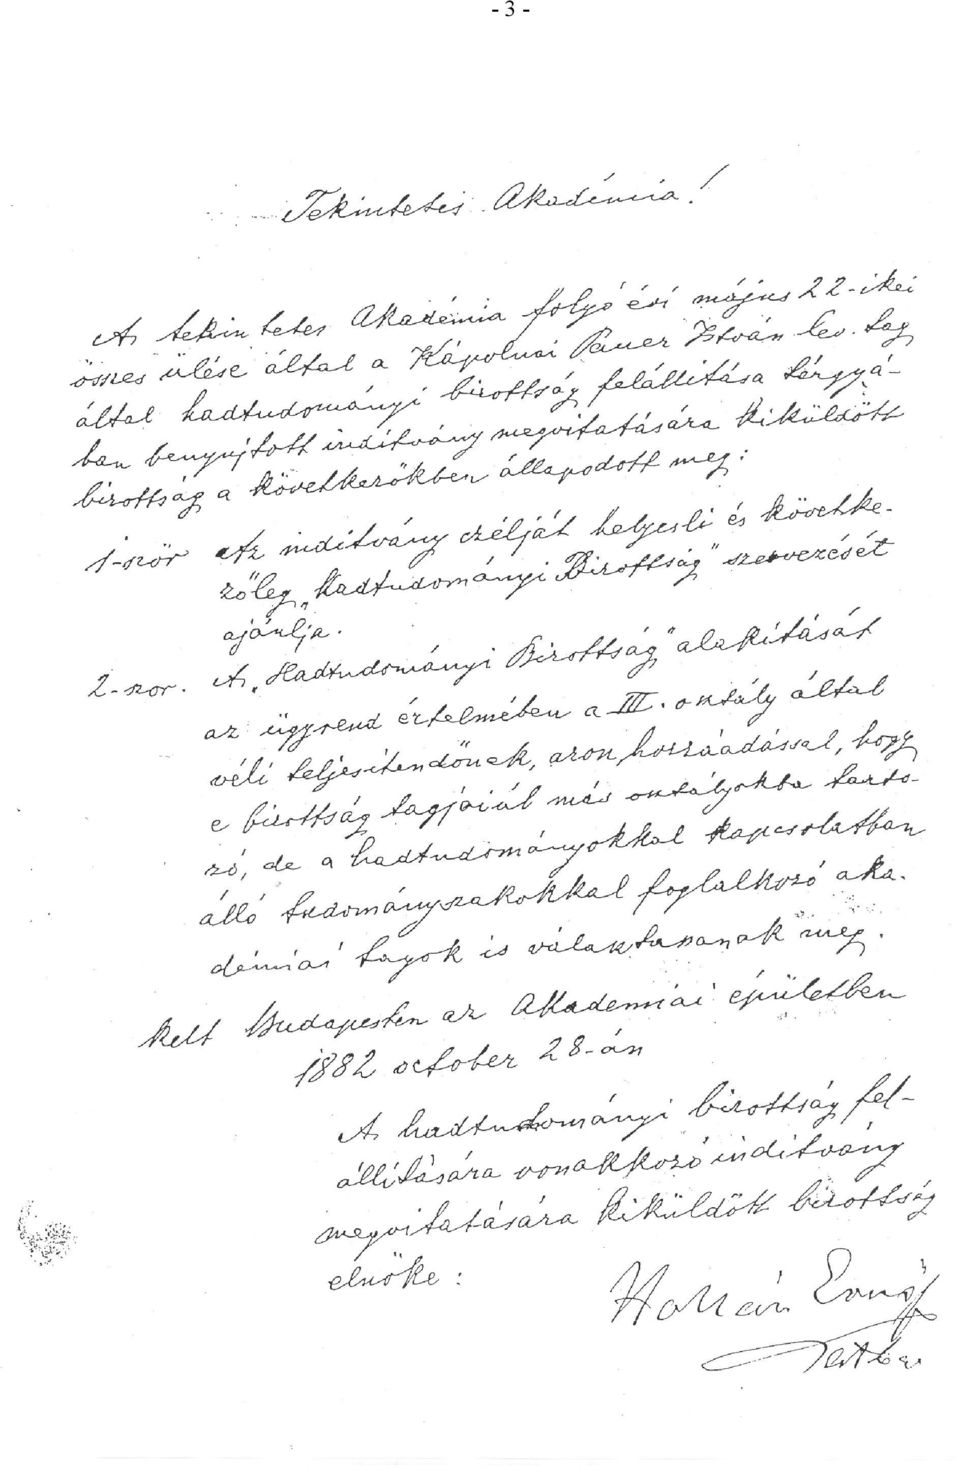 - 3 -
Tekintetes Akadémia!
A tekintetes Akadémia folyó évi május 22-ikei
összes ülése által a Kápolnai Pauer István lev. tag
által hadtudományi bizottság felállitása tárgyá-
ban benyujtott inditvány megvitatására kiküldött
bizottság a következőkben állapodott meg:
1-ször Az inditvány czélját helyesli és követke-
zőleg „Hadtudományi Bizottság" szervezését
ajánlja.
2-szor. A „Hadtudományi Bizottság" alakitását
az ügyrend értelmében a III. osztály által
véli teljesitendőnek, azon hozzáadással, hogy
e bizottság tagjaiúl más osztályokba tarto-
zó, de a hadtudományokkal kapcsolatban
álló tudományszakokkal foglalkozó aka-
démiai tagok is választassanak meg.
Kelt Budapesten az Akademiai épületben
1882 october 28-án
A hadtudományi bizottság fel-
állitására vonatkozó inditvány
megvitatására kiküldött bizottság
elnöke:
Hollán Ernő